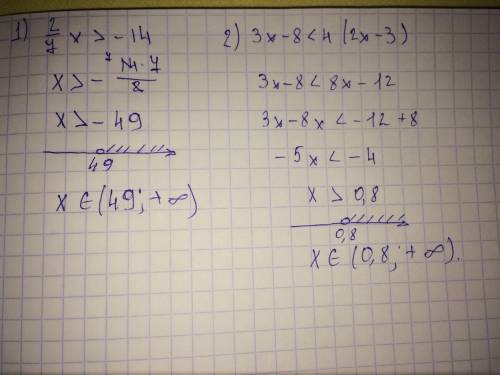 1) 2/7 x > -14
x > - 14·7/2
x > - 49
49
x ∈ (49; +∞)
2) 3x-8 < 4 (2x-3)
3x-8 < 8x - 12
3x-8x < -12 +8
-5x < -4
x > 0,8
0,8
x ∈ (0,8; +∞).